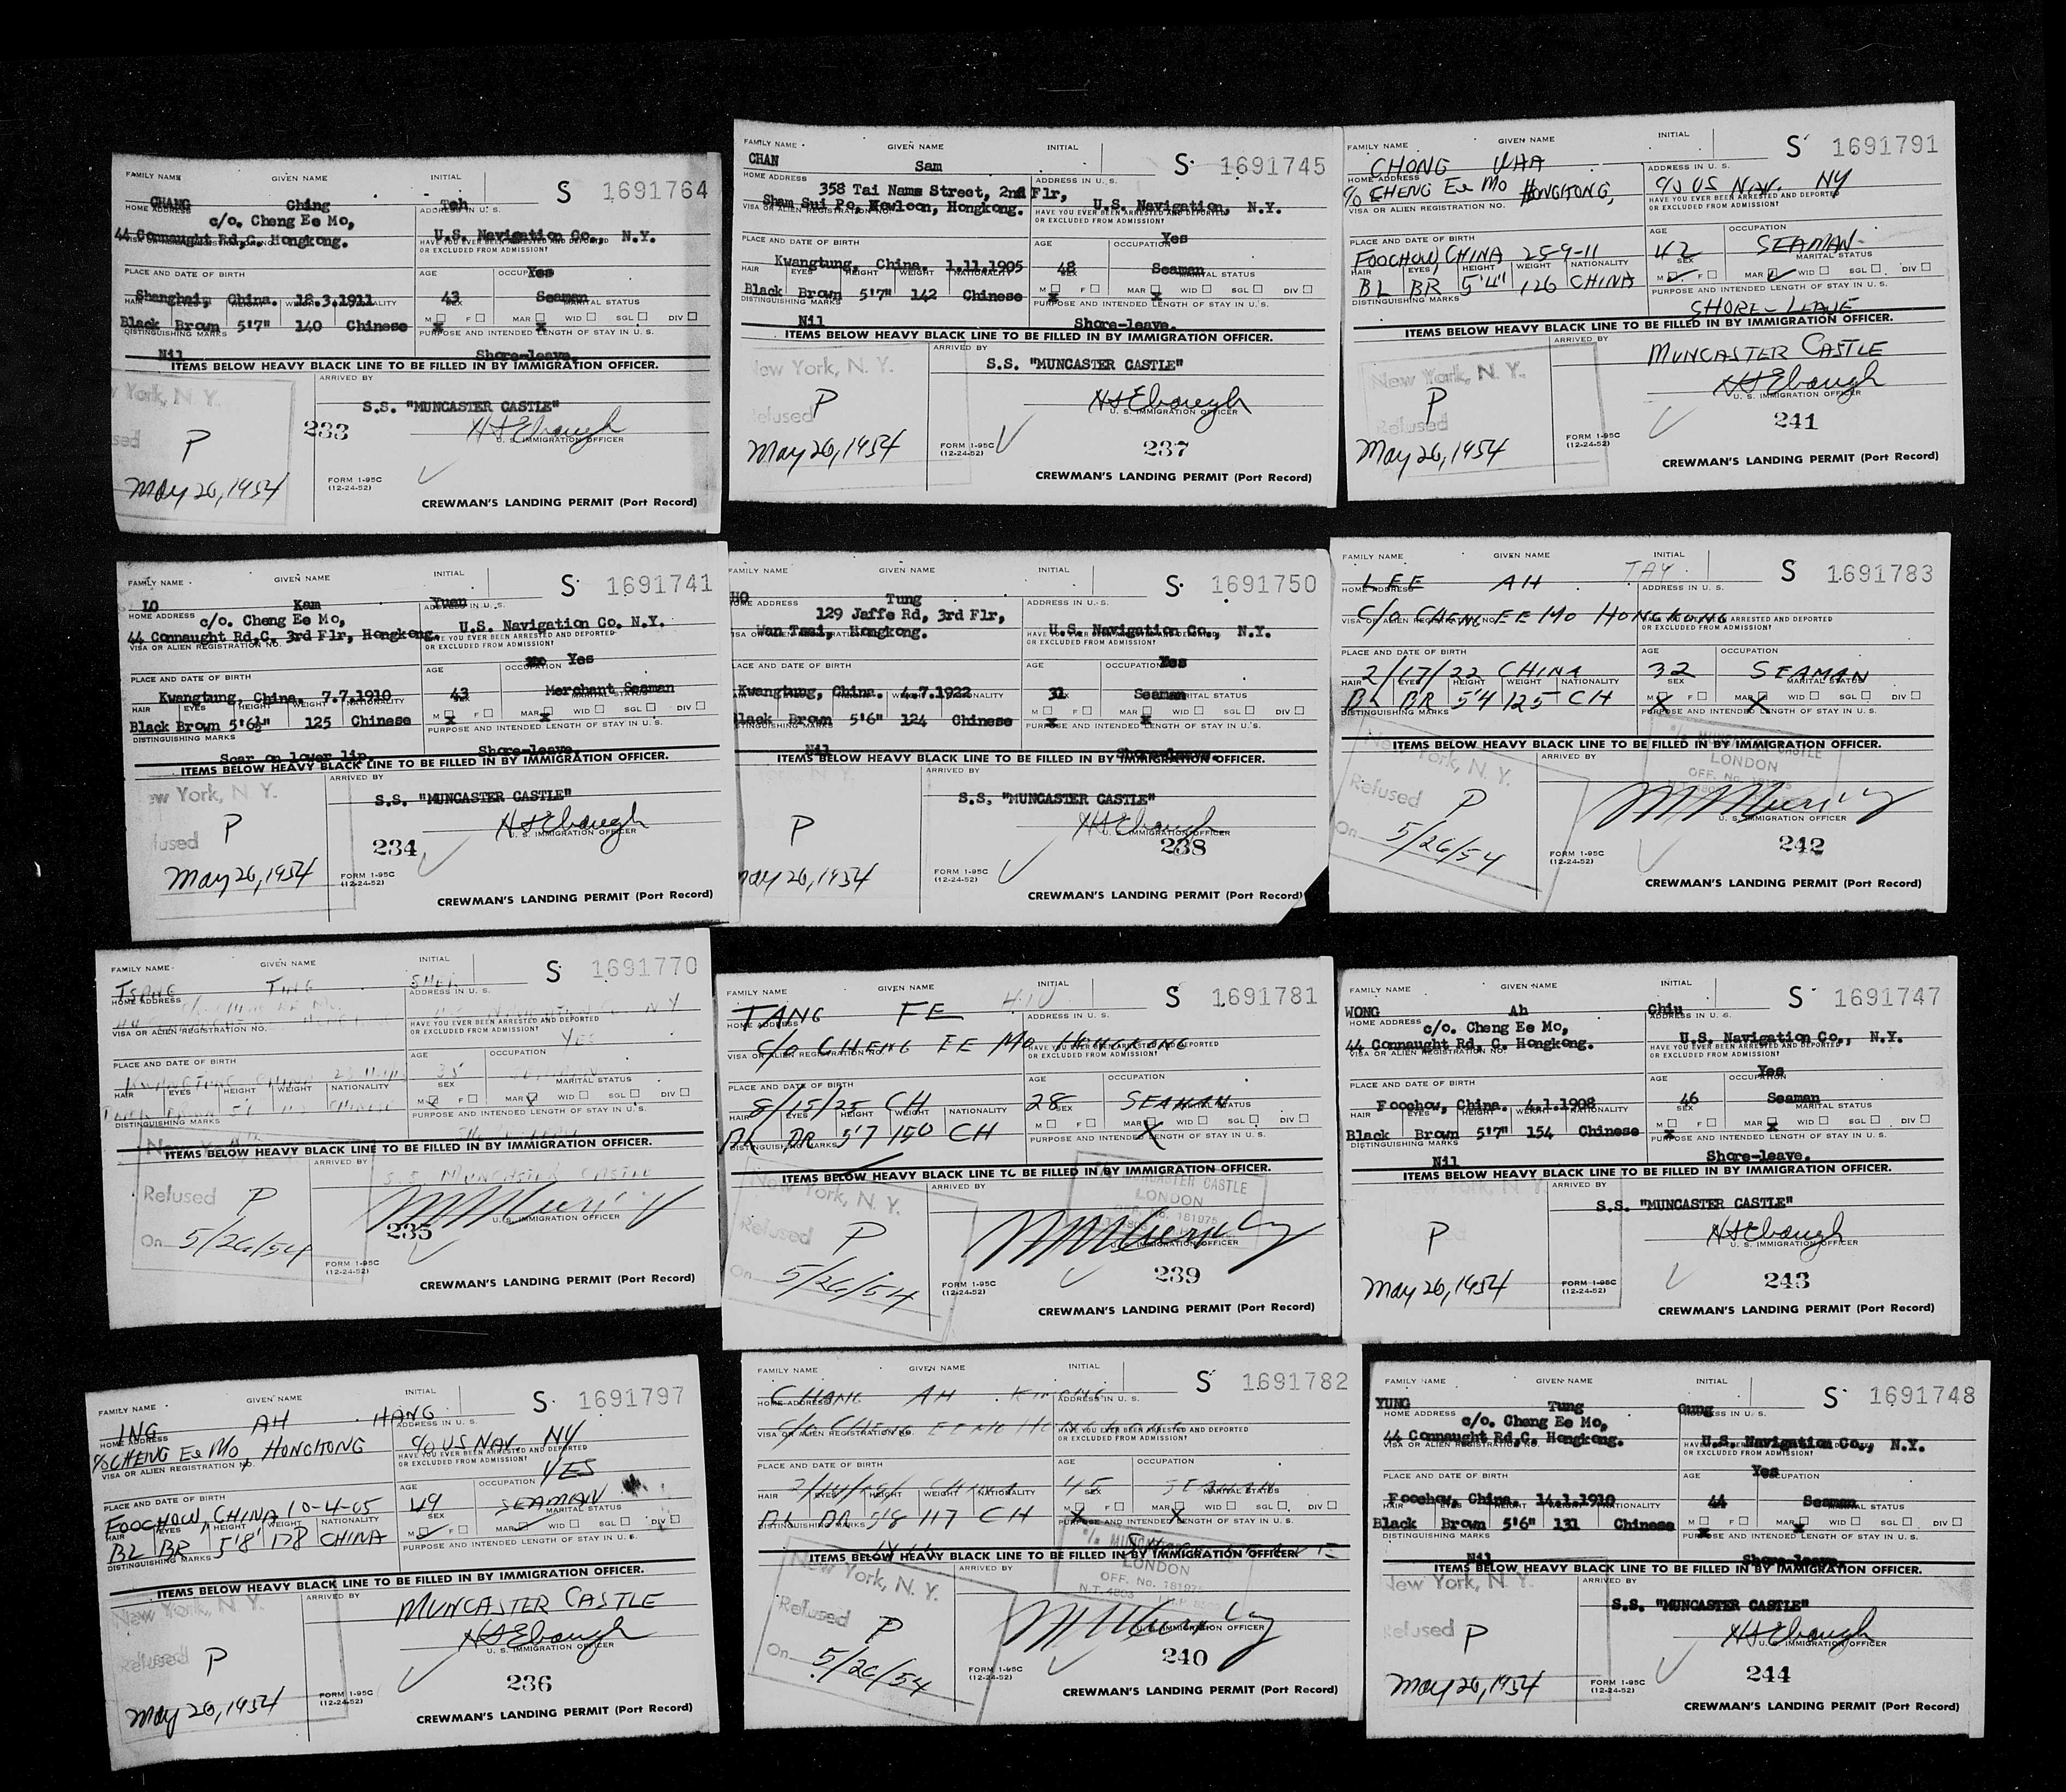 FAMILY NAME GIVEN NAME INITIAL S 1691764
CHANG Ching Teh
HOME ADDRESS ADDRESS IN U. S.
c/o. Cheng Ee Mo,
44 Connaught Rd,C. Hongkong. U.S. Navigation Co., N.Y.
VISA OR ALIEN REGISTRATION NO. HAVE YOU EVER BEEN ARRESTED AND DEPORTED OR EXCLUDED FROM ADMISSION?
Yes
PLACE AND DATE OF BIRTH AGE OCCUPATION
Shanghai, China. 18.3.1911 43 Seaman
HAIR EYES HEIGHT WEIGHT NATIONALITY SEX MARITAL STATUS
Black Brown 5'7" 140 Chinese M X F MAR X WID SGL DIV
DISTINGUISHING MARKS PURPOSE AND INTENDED LENGTH OF STAY IN U. S.
Nil Shore-leave.
ITEMS BELOW HEAVY BLACK LINE TO BE FILLED IN BY IMMIGRATION OFFICER.
York, N. Y. ARRIVED BY
S.S. "MUNCASTER CASTLE"
P 233 H S Ebaugh
U. S. IMMIGRATION OFFICER
May 26, 1954 FORM I-95C
(12-24-52)
CREWMAN'S LANDING PERMIT (Port Record)
FAMILY NAME GIVEN NAME INITIAL S 1691745
CHAN Sam
HOME ADDRESS ADDRESS IN U. S.
358 Tai Nams Street, 2nd Flr,
Sham Sui Po, Kowloon, Hongkong. U.S. Navigation, N.Y.
VISA OR ALIEN REGISTRATION NO. HAVE YOU EVER BEEN ARRESTED AND DEPORTED OR EXCLUDED FROM ADMISSION?
Yes
PLACE AND DATE OF BIRTH AGE OCCUPATION
Kwangtung, China. 1.11.1905 48 Seaman
HAIR EYES HEIGHT WEIGHT NATIONALITY SEX MARITAL STATUS
Black Brown 5'7" 142 Chinese M X F MAR X WID SGL DIV
DISTINGUISHING MARKS PURPOSE AND INTENDED LENGTH OF STAY IN U. S.
Nil Shore-leave.
ITEMS BELOW HEAVY BLACK LINE TO BE FILLED IN BY IMMIGRATION OFFICER.
New York, N. Y. ARRIVED BY
S.S. "MUNCASTER CASTLE"
Refused P H S Ebaugh
U. S. IMMIGRATION OFFICER
May 26, 1954 FORM I-95C
(12-24-52) 237
CREWMAN'S LANDING PERMIT (Port Record)
FAMILY NAME GIVEN NAME INITIAL S 1691791
CHONG WHA
HOME ADDRESS ADDRESS IN U. S.
c/o CHENG Ee Mo HONGKONG, c/o US NAV. NY
VISA OR ALIEN REGISTRATION NO. HAVE YOU EVER BEEN ARRESTED AND DEPORTED OR EXCLUDED FROM ADMISSION?
PLACE AND DATE OF BIRTH AGE OCCUPATION
FOOCHOW, CHINA 25-9-11 42 SEAMAN
HAIR EYES HEIGHT WEIGHT NATIONALITY SEX MARITAL STATUS
BL BR 5'4" 126 CHINA M F MAR WID SGL DIV
DISTINGUISHING MARKS PURPOSE AND INTENDED LENGTH OF STAY IN U. S.
SHORE-LEAVE
ITEMS BELOW HEAVY BLACK LINE TO BE FILLED IN BY IMMIGRATION OFFICER.
New York, N. Y. ARRIVED BY
MUNCASTER CASTLE
P H S Ebaugh
Refused U. S. IMMIGRATION OFFICER
May 26, 1954 FORM I-95C
(12-24-52) 241
CREWMAN'S LANDING PERMIT (Port Record)
FAMILY NAME GIVEN NAME INITIAL S 1691741
LO Kam Yuen
HOME ADDRESS ADDRESS IN U. S.
c/o. Cheng Ee Mo,
44 Connaught Rd,C. 3rd Flr, Hongkong. U.S. Navigation Co. N.Y.
VISA OR ALIEN REGISTRATION NO. HAVE YOU EVER BEEN ARRESTED AND DEPORTED OR EXCLUDED FROM ADMISSION?
Yes
PLACE AND DATE OF BIRTH AGE OCCUPATION
Kwangtung, China. 7.7.1910 43 Merchant Seaman
HAIR EYES HEIGHT WEIGHT NATIONALITY SEX MARITAL STATUS
Black Brown 5'6½ 125 Chinese M X F MAR X WID SGL DIV
DISTINGUISHING MARKS PURPOSE AND INTENDED LENGTH OF STAY IN U. S.
Scar on lower lip. Shore-leave.
ITEMS BELOW HEAVY BLACK LINE TO BE FILLED IN BY IMMIGRATION OFFICER.
New York, N Y. ARRIVED BY
S.S. "MUNCASTER CASTLE"
P 234 H S Ebaugh
U. S. IMMIGRATION OFFICER
May 26, 1954 FORM I-95C
(12-24-52)
CREWMAN'S LANDING PERMIT (Port Record)
FAMILY NAME GIVEN NAME INITIAL S 1691750
HO Tung
HOME ADDRESS ADDRESS IN U. S.
129 Jaffe Rd, 3rd Flr,
Wan Tsai, Hongkong. U.S. Navigation Co., N.Y.
VISA OR ALIEN REGISTRATION NO. HAVE YOU EVER BEEN ARRESTED AND DEPORTED OR EXCLUDED FROM ADMISSION?
Yes
PLACE AND DATE OF BIRTH AGE OCCUPATION
Kwangtung, China. 4.7.1922 31 Seaman
HAIR EYES HEIGHT WEIGHT NATIONALITY SEX MARITAL STATUS
Black Brown 5'6" 124 Chinese M X F MAR X WID SGL DIV
DISTINGUISHING MARKS PURPOSE AND INTENDED LENGTH OF STAY IN U. S.
Nil Shore-leave.
ITEMS BELOW HEAVY BLACK LINE TO BE FILLED IN BY IMMIGRATION OFFICER.
ARRIVED BY
S.S. "MUNCASTER CASTLE"
P H S Ebaugh
U. S. IMMIGRATION OFFICER
238
May 26, 1954 FORM I-95C
(12-24-52)
CREWMAN'S LANDING PERMIT (Port Record)
FAMILY NAME GIVEN NAME INITIAL S 1691783
LEE AH TAY
HOME ADDRESS ADDRESS IN U. S.
C/O CHENG EE MO HONGKONG
VISA OR ALIEN REGISTRATION NO. HAVE YOU EVER BEEN ARRESTED AND DEPORTED OR EXCLUDED FROM ADMISSION?
PLACE AND DATE OF BIRTH AGE OCCUPATION
2/17/22 CHINA 32 SEAMAN
HAIR EYES HEIGHT WEIGHT NATIONALITY SEX MARITAL STATUS
BL BR 5'4 125 CH M X F MAR X WID SGL DIV
DISTINGUISHING MARKS PURPOSE AND INTENDED LENGTH OF STAY IN U. S.
ITEMS BELOW HEAVY BLACK LINE TO BE FILLED IN BY IMMIGRATION OFFICER.
New York, N. Y. ARRIVED BY LONDON
Refused P
U. S. IMMIGRATION OFFICER
On 5/26/54 FORM I-95C
(12-24-52) 242
CREWMAN'S LANDING PERMIT (Port Record)
FAMILY NAME GIVEN NAME INITIAL S 1691770
TSANG TING
HOME ADDRESS ADDRESS IN U. S.
N Y
VISA OR ALIEN REGISTRATION NO. HAVE YOU EVER BEEN ARRESTED AND DEPORTED OR EXCLUDED FROM ADMISSION?
YES
PLACE AND DATE OF BIRTH AGE OCCUPATION
KWANGTUNG CHINA 35 SEAMAN
HAIR EYES HEIGHT WEIGHT NATIONALITY SEX MARITAL STATUS
CHINESE M F MAR WID SGL DIV
DISTINGUISHING MARKS PURPOSE AND INTENDED LENGTH OF STAY IN U. S.
ITEMS BELOW HEAVY BLACK LINE TO BE FILLED IN BY IMMIGRATION OFFICER.
ARRIVED BY
S.S. MUNCASTER CASTLE
Refused P
235 U. S. IMMIGRATION OFFICER
On 5/26/54 FORM I-95C
(12-24-52)
CREWMAN'S LANDING PERMIT (Port Record)
FAMILY NAME GIVEN NAME INITIAL S 1691781
TANG FE
HOME ADDRESS ADDRESS IN U. S.
C/O CHENG EE MO HONGKONG
VISA OR ALIEN REGISTRATION NO. HAVE YOU EVER BEEN ARRESTED AND DEPORTED OR EXCLUDED FROM ADMISSION?
PLACE AND DATE OF BIRTH AGE OCCUPATION
8/15/25 CH 28 SEAMAN
HAIR EYES HEIGHT WEIGHT NATIONALITY SEX MARITAL STATUS
BL BR 5'7 150 CH M F MAR X WID SGL DIV
DISTINGUISHING MARKS PURPOSE AND INTENDED LENGTH OF STAY IN U. S.
ITEMS BELOW HEAVY BLACK LINE TO BE FILLED IN BY IMMIGRATION OFFICER.
New York, N. Y. ARRIVED BY MUNCASTER CASTLE
LONDON
OFF. No. 181975
Refused P
U. S. IMMIGRATION OFFICER
On 5/26/54 FORM I-95C
(12-24-52) 239
CREWMAN'S LANDING PERMIT (Port Record)
FAMILY NAME GIVEN NAME INITIAL S 1691747
WONG Ah Chiu
HOME ADDRESS ADDRESS IN U. S.
c/o. Cheng Ee Mo,
44 Connaught Rd, C. Hongkong. U.S. Navigation Co., N.Y.
VISA OR ALIEN REGISTRATION NO. HAVE YOU EVER BEEN ARRESTED AND DEPORTED OR EXCLUDED FROM ADMISSION?
Yes
PLACE AND DATE OF BIRTH AGE OCCUPATION
Foochow, China. 4.1.1908 46 Seaman
HAIR EYES HEIGHT WEIGHT NATIONALITY SEX MARITAL STATUS
Black Brown 5'7" 154 Chinese M X F MAR X WID SGL DIV
DISTINGUISHING MARKS PURPOSE AND INTENDED LENGTH OF STAY IN U. S.
Nil Shore-leave.
ITEMS BELOW HEAVY BLACK LINE TO BE FILLED IN BY IMMIGRATION OFFICER.
ARRIVED BY
S.S. "MUNCASTER CASTLE"
P H S Ebaugh
U. S. IMMIGRATION OFFICER
May 26, 1954 FORM I-95C
(12-24-52) 243
CREWMAN'S LANDING PERMIT (Port Record)
FAMILY NAME GIVEN NAME INITIAL S 1691797
ING AH HANG
HOME ADDRESS ADDRESS IN U. S.
c/o CHENG Ee Mo HONGKONG c/o US NAV NY
VISA OR ALIEN REGISTRATION NO. HAVE YOU EVER BEEN ARRESTED AND DEPORTED OR EXCLUDED FROM ADMISSION?
YES
PLACE AND DATE OF BIRTH AGE OCCUPATION
FOOCHOW, CHINA 10-4-05 49 SEAMAN
HAIR EYES HEIGHT WEIGHT NATIONALITY SEX MARITAL STATUS
BL BR 5'8' 178 CHINA M F MAR WID SGL DIV
DISTINGUISHING MARKS PURPOSE AND INTENDED LENGTH OF STAY IN U. S.
ITEMS BELOW HEAVY BLACK LINE TO BE FILLED IN BY IMMIGRATION OFFICER.
New York, N Y. ARRIVED BY
MUNCASTER CASTLE
Refused P H S Ebaugh
U. S. IMMIGRATION OFFICER
May 26, 1954 FORM I-95C
(12-24-52) 236
CREWMAN'S LANDING PERMIT (Port Record)
FAMILY NAME GIVEN NAME INITIAL S 1691782
CHANG AH
HOME ADDRESS ADDRESS IN U. S.
C/O CHENG EE MO HONGKONG
VISA OR ALIEN REGISTRATION NO. HAVE YOU EVER BEEN ARRESTED AND DEPORTED OR EXCLUDED FROM ADMISSION?
PLACE AND DATE OF BIRTH AGE OCCUPATION
CHINA 45 SEAMAN
HAIR EYES HEIGHT WEIGHT NATIONALITY SEX MARITAL STATUS
BL BR 5'8 117 CH M X F MAR X WID SGL DIV
DISTINGUISHING MARKS PURPOSE AND INTENDED LENGTH OF STAY IN U. S.
ITEMS BELOW HEAVY BLACK LINE TO BE FILLED IN BY IMMIGRATION OFFICER.
New York, N. Y. ARRIVED BY LONDON
OFF. No. 181975
N.T. 4803
Refused P
U. S. IMMIGRATION OFFICER
On 5/26/54 FORM I-95C
(12-24-52) 240
CREWMAN'S LANDING PERMIT (Port Record)
FAMILY NAME GIVEN NAME INITIAL S 1691748
YUNG Tung Gung
HOME ADDRESS ADDRESS IN U. S.
c/o. Cheng Ee Mo,
44 Connaught Rd,C. Hongkong. U.S. Navigation Co., N.Y.
VISA OR ALIEN REGISTRATION NO. HAVE YOU EVER BEEN ARRESTED AND DEPORTED OR EXCLUDED FROM ADMISSION?
Yes
PLACE AND DATE OF BIRTH AGE OCCUPATION
Foochow, China. 14.1.1910 44 Seaman
HAIR EYES HEIGHT WEIGHT NATIONALITY SEX MARITAL STATUS
Black Brown 5'6" 131 Chinese M X F MAR X WID SGL DIV
DISTINGUISHING MARKS PURPOSE AND INTENDED LENGTH OF STAY IN U. S.
Nil Shore-leave.
ITEMS BELOW HEAVY BLACK LINE TO BE FILLED IN BY IMMIGRATION OFFICER.
New York, N. Y. ARRIVED BY
S.S. "MUNCASTER CASTLE"
Refused P H S Ebaugh
U. S. IMMIGRATION OFFICER
May 26, 1954 FORM I-95C
(12-24-52) 244
CREWMAN'S LANDING PERMIT (Port Record)